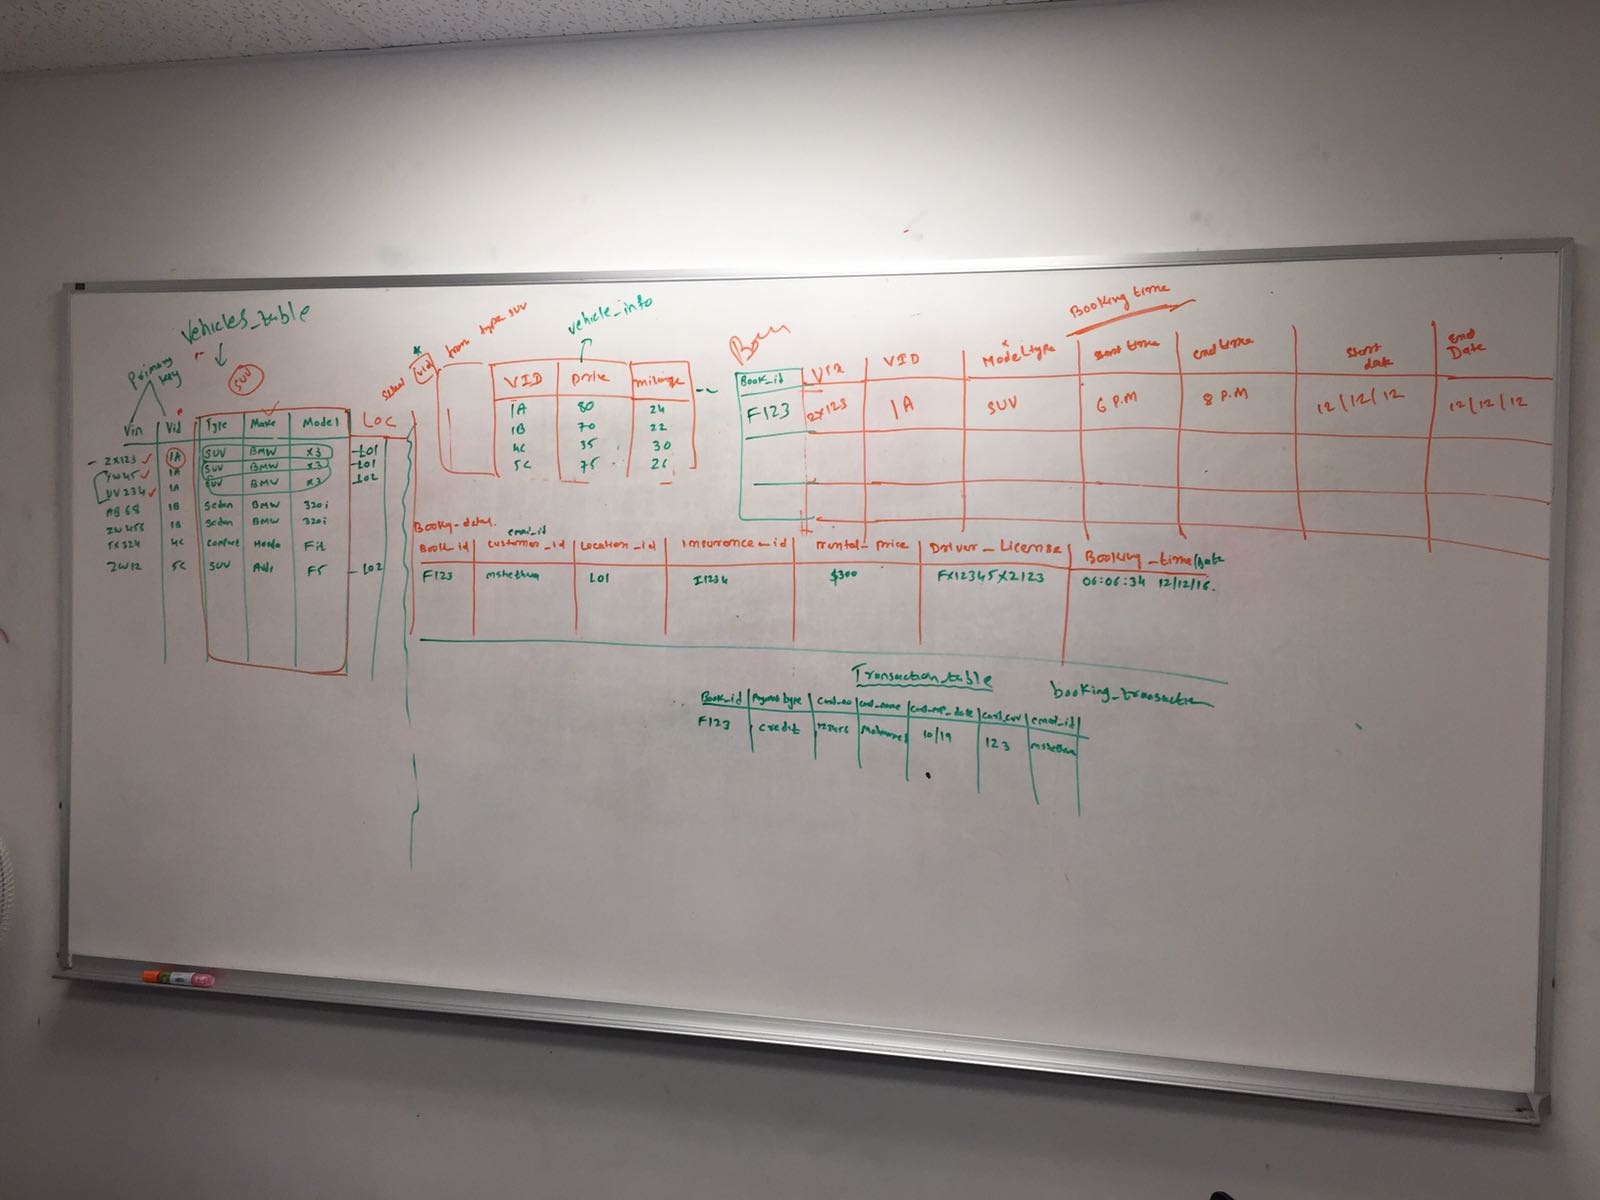 Vehicles_table
Primary key
SUV
Vin Vid Type Make Model LOC
2X123 1A SUV BMW X3 L01
YW45 1A SUV BMW X3 L01
UV234 1A SUV BMW X3 L02
AB68 1B Sedan BMW 320i
ZW456 1B Sedan BMW 320i
TX324 4C Compact Honda Fit
ZW12 5C SUV Audi F5 L02
select vid from type SUV
vehicle_info
VID price mileage
1A 80 24
1B 70 22
4C 35 30
5C 75 26
Booking time
Book_id VIN VID Model type start time end time start date End Date
F123 2X123 1A SUV 6 P.M 8 P.M 12/12/12 12/12/12
email_id
Book_id customer_id Location_id Insurance_id rental_price Driver_License Booking_time/Date
F123 mshethwa L01 I1234 $300 FX12345X2123 06:06:34 12/12/16.
Transaction_table
booking_transaction
Book_id Payment type Card_no Card_name Card_exp_date Card_cvv email_id
F123 credit 123456 10/19 123 mshethwa